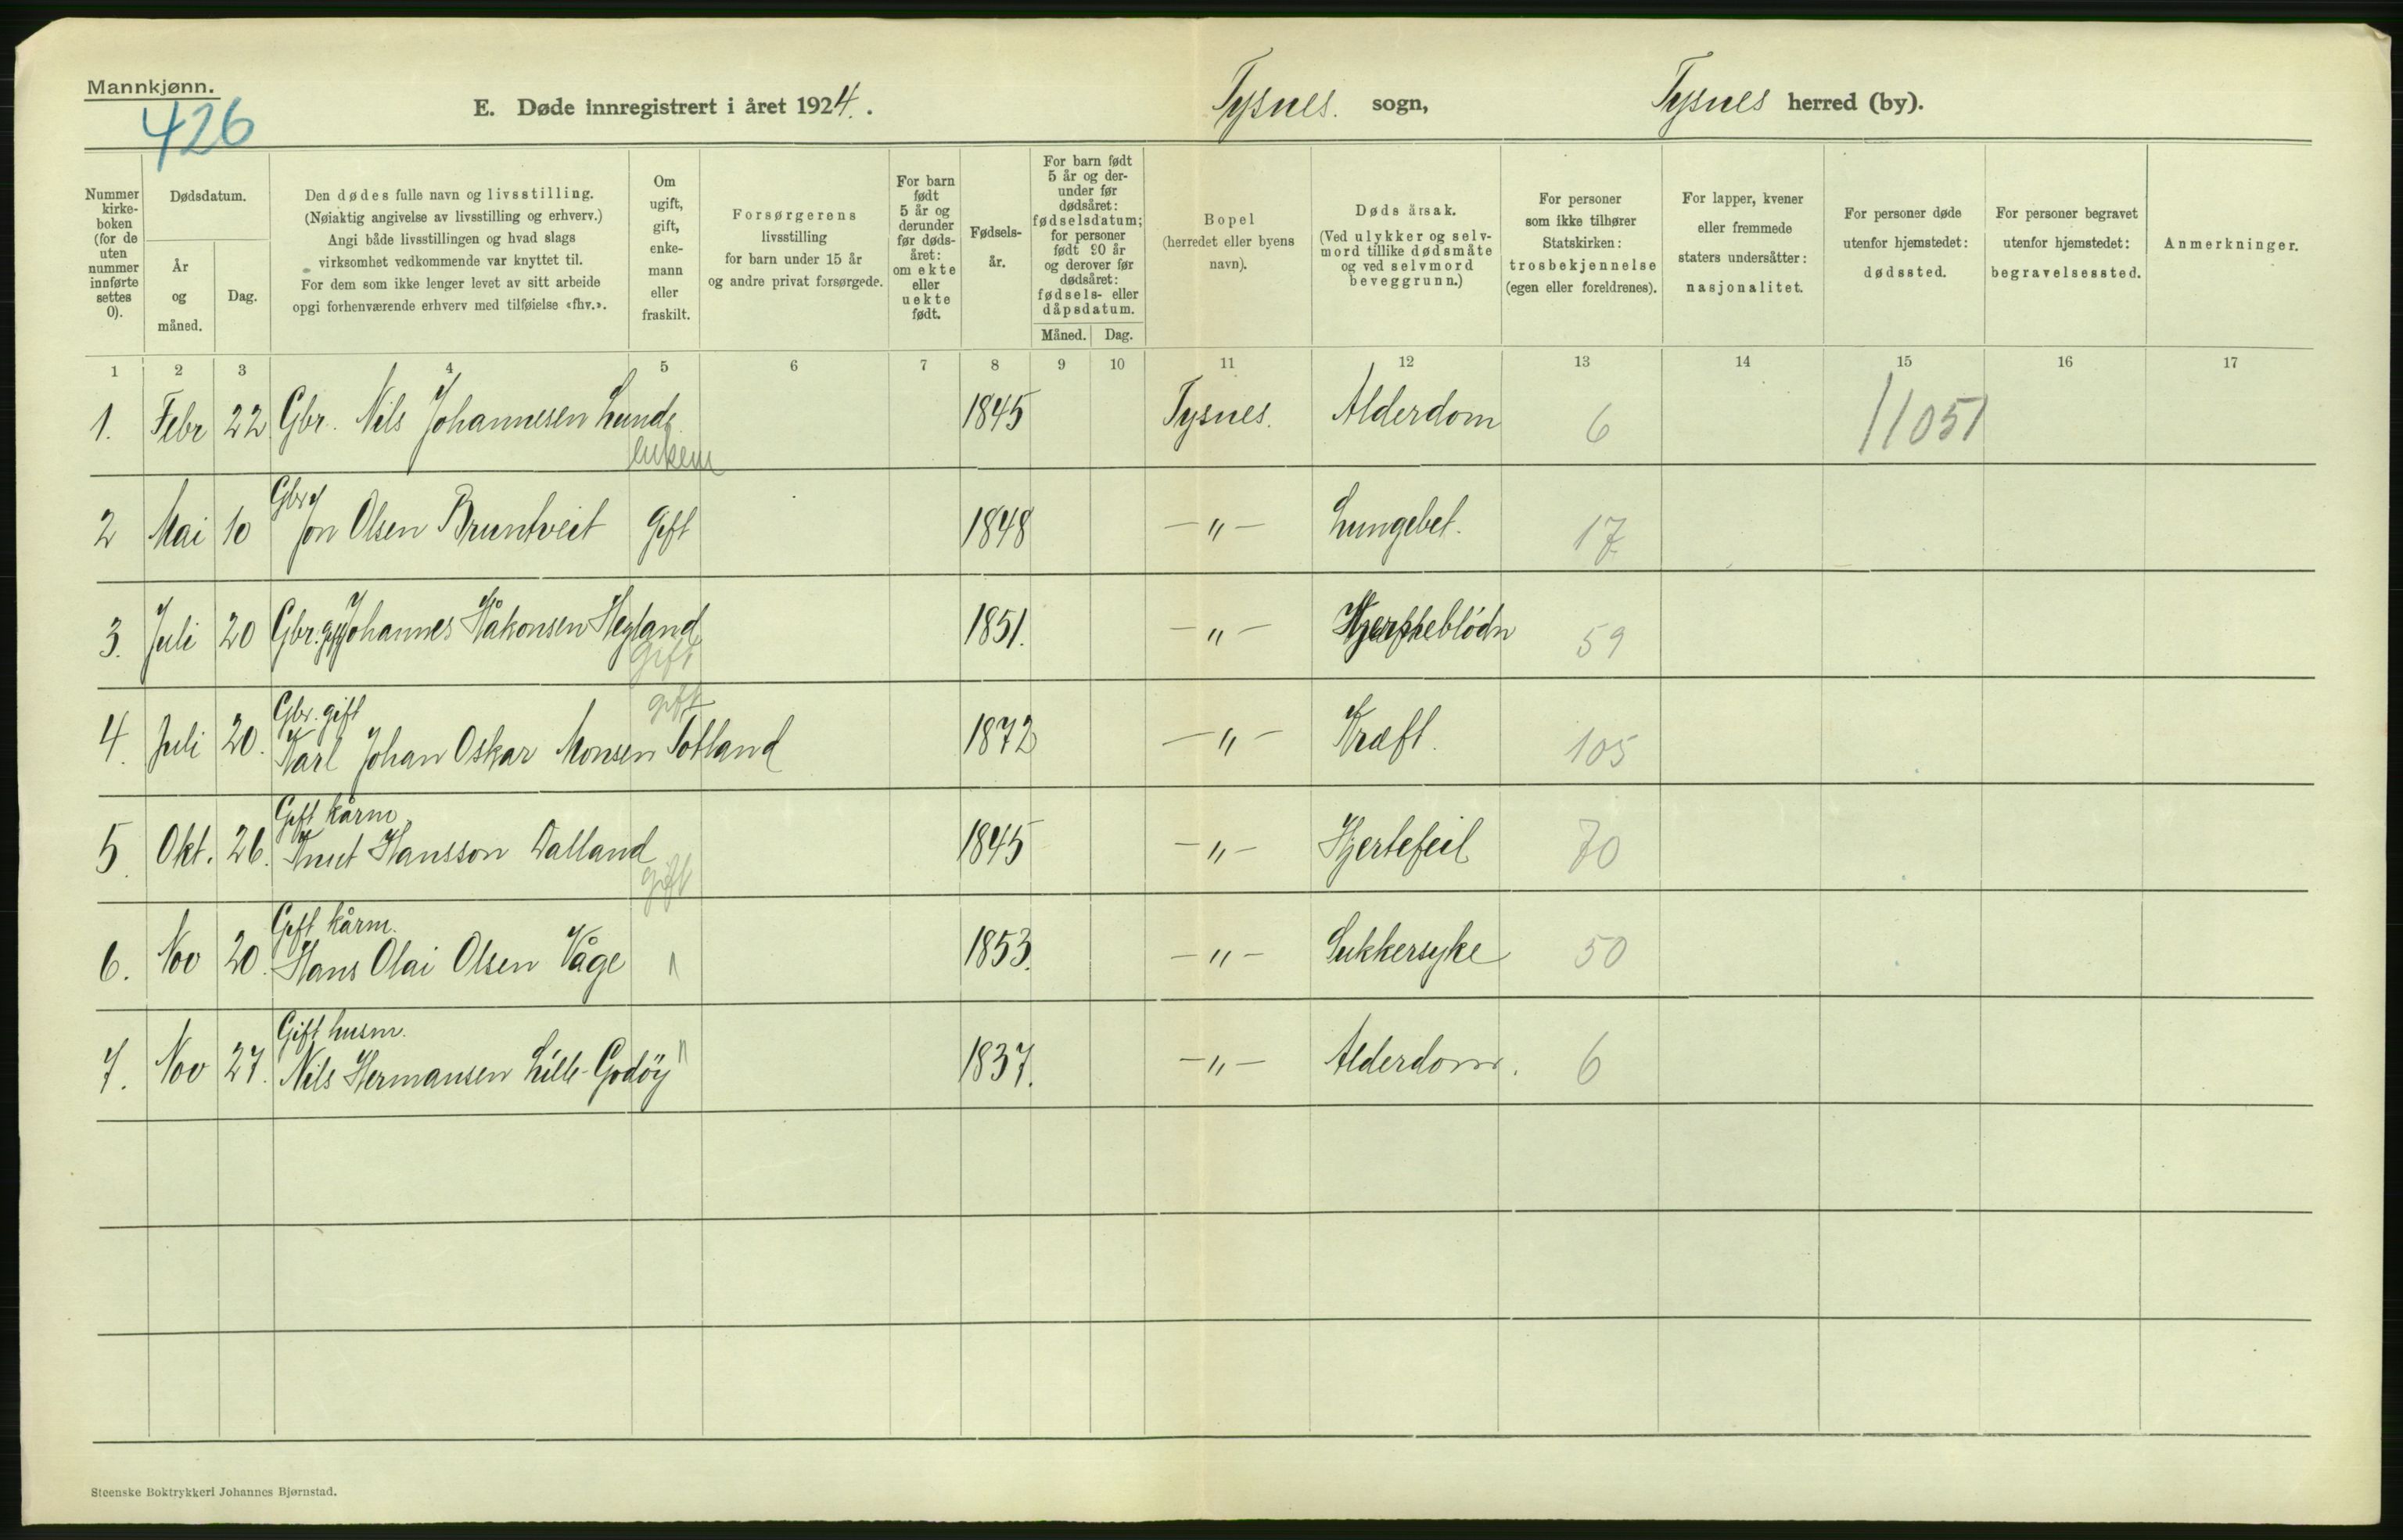 Mannkjønn.
426
E. Døde innregistrert i året 1924.
Tysnes. sogn, Tysnes herred (by).
Nummer kirke- boken (for de uten nummer innførte settes 0).
Dødsdatum.
År og måned.
Dag.
Den dødes fulle navn og livsstilling.
(Nøiaktig angivelse av livsstilling og erhverv.)
Angi både livsstillingen og hvad slags
virksomhet vedkommende var knyttet til.
For dem som ikke lenger levet av sitt arbeide
opgi forhenværende erhverv med tilføielse «fhv.».
Om ugift, gift, enke- mann eller fraskilt.
Forsørgerens
livsstilling
for barn under 15 år
og andre privat forsørgede.
For barn født 5 år og derunder før døds- året: om ekte eller uekte født.
Fødsels- år.
For barn født 5 år og der- under før dødsåret: fødselsdatum; for personer født 90 år og derover før dødsåret: fødsels- eller dåpsdatum.
Måned. Dag.
Bopel
(herredet eller byens
navn).
Dødsårsak.
(Ved ulykker og selv-
mord tillike dødsmåte
og ved selvmord
beveggrunn.)
For personer
som ikke tilhører
Statskirken:
trosbekjennelse
(egen eller foreldrenes).
For lapper, kvener
eller fremmede
staters undersåtter:
nasjonalitet.
For personer døde
utenfor hjemstedet:
dødssted.
For personer begravet
utenfor hjemstedet:
begravelsessted.
Anmerkninger.
1 2 3 4 5 6 7 8 9 10 11 12 13 14 15 16 17
1. Febr 22 Gbr. Nils Johannesen Lunde 1845 Tysnes. Alderdom 6 11051
enkem
Gbr
2 Mai 10 Jon Olsen Bruntveit Gift 1848 -"- Lungebet. 17
3. Juli 20 Gbr. gift Johannes Håkonsen Hegland 1851. -"- 59
gift
Gbr. gift gift
4. Juli 20. Karl Johan Oskar Monsen Sotland 1872 -"- Kræft. 105
Gift kårm
5. Okt. 26. Knut Hansson Dalland 1845 -"- Hjertefeil 70
gift
Gift kårm.
6. Nov 20. Hans Olai Olsen Våge " 1853. -"- Sukkersyke 50
Gift husm.
7. Nov 27. Nils Hermansen Lille-Godöy " 1837. -"- Alderdom. 6
Steenske Boktrykkeri Johannes Bjørnstad.